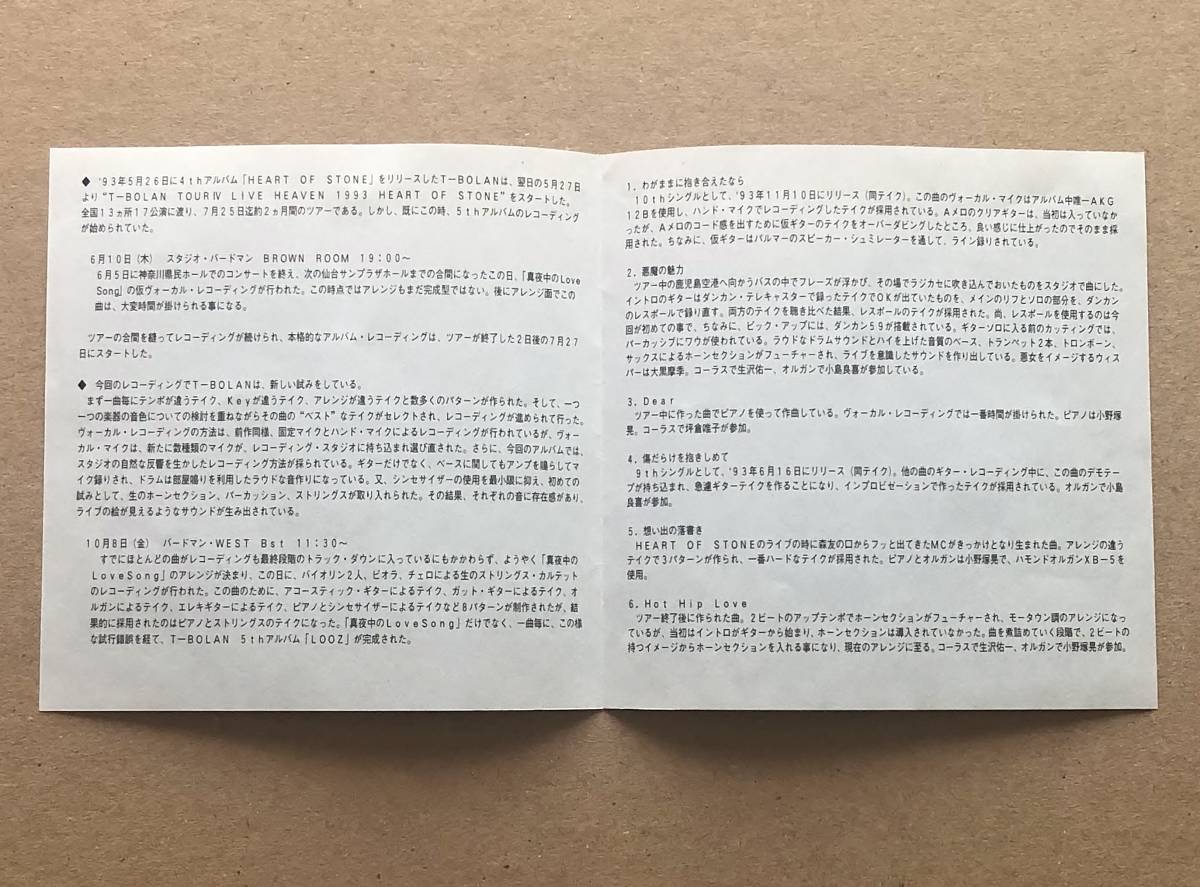 ◆ '93年5月26日に4thアルバム「HEART OF STONE」をリリースしたT-BOLANは、翌日の5月27日
より“T-BOLAN TOURⅣ LIVE HEAVEN 1993 HEART OF STONE”をスタートした。
全国13ヵ所17公演に渡り、7月25日迄約2ヵ月間のツアーである。しかし、既にこの時、5thアルバムのレコーディング
が始められていた。
6月10日(木) スタジオ・バードマン BROWN ROOM 19:00〜
6月5日に神奈川県民ホールでのコンサートを終え、次の仙台サンプラザホールまでの合間になったこの日、「真夜中のLove
Song」の仮ヴォーカル・レコーディングが行われた。この時点ではアレンジもまだ完成型ではない。後にアレンジ面でこの
曲は、大変時間が掛けられる事になる。
ツアーの合間を縫ってレコーディングが続けられ、本格的なアルバム・レコーディングは、ツアーが終了した2日後の7月27
日にスタートした。
◆ 今回のレコーディングでT-BOLANは、新しい試みをしている。
まず一曲毎にテンポが違うテイク、Keyが違うテイク、アレンジが違うテイクと数多くのパターンが作られた。そして、一つ
一つの楽器の音色についての検討を重ねながらその曲の“ベスト”なテイクがセレクトされ、レコーディングが進められて行った。
ヴォーカル・レコーディングの方法は、前作同様、固定マイクとハンド・マイクによるレコーディングが行われているが、ヴォー
カル・マイクは、新たに数種類のマイクが、レコーディング・スタジオに持ち込まれ選び直された。さらに、今回のアルバムでは、
スタジオの自然な反響を生かしたレコーディング方法が採られている。ギターだけでなく、ベースに関してもアンプを鳴らしてマ
イク録りされ、ドラムは部屋鳴りを利用したラウドな音作りになっている。又、シンセサイザーの使用を最小限に抑え、初めての
試みとして、生のホーンセクション、パーカッション、ストリングスが取り入れられた。その結果、それぞれの音に存在感があり、
ライブの絵が見えるようなサウンドが生み出されている。
10月8日(金) バードマン・WEST Bst 11:30〜
すでにほとんどの曲がレコーディングも最終段階のトラック・ダウンに入っているにもかかわらず、ようやく「真夜中の
LoveSong」のアレンジが決まり、この日に、バイオリン2人、ビオラ、チェロによる生のストリングス・カルテット
のレコーディングが行われた。この曲のために、アコースティック・ギターによるテイク、ガット・ギターによるテイク、オ
ルガンによるテイク、エレキギターによるテイク、ピアノとシンセサイザーによるテイクなど8パターンが制作されたが、結
果的に採用されたのはピアノとストリングスのテイクになった。「真夜中のLoveSong」だけでなく、一曲毎に、この様
な試行錯誤を経て、T-BOLAN 5thアルバム「LOOZ」が完成された。
1. わがままに抱き合えたなら
10thシングルとして、'93年11月10日にリリース(同テイク)。この曲のヴォーカル・マイクはアルバム中唯一AKG
12Bを使用し、ハンド・マイクでレコーディングしたテイクが採用されている。Aメロのクリアギターは、当初は入っていなか
ったが、Aメロのコード感を出すために仮ギターのテイクをオーバーダビングしたところ、良い感じに仕上がったのでそのまま採
用された。ちなみに、仮ギターはパルマーのスピーカー・シュミレーターを通して、ライン録りされている。
2. 悪魔の魅力
ツアー中の鹿児島空港へ向かうバスの中でフレーズが浮かび、その場でラジカセに吹き込んでおいたものをスタジオで曲にした。
イントロのギターはダンカン・テレキャスターで録ったテイクでOKが出ていたものを、メインのリフとソロの部分を、ダンカン
のレスポールで録り直す。両方のテイクを聴き比べた結果、レスポールのテイクが採用された。尚、レスポールを使用するのは今
回が初めての事で、ちなみに、ピック・アップには、ダンカン59が搭載されている。ギターソロに入る前のカッティングでは、
パーカッシブにワウが使われている。ラウドなドラムサウンドとハイを上げた音質のベース、トランペット2本、トロンボーン、
サックスによるホーンセクションがフューチャーされ、ライブを意識したサウンドを作り出している。悪女をイメージするウィス
パーは大黒摩季。コーラスで生沢佑一、オルガンで小島良喜が参加している。
3. Dear
ツアー中に作った曲でピアノを使って作曲している。ヴォーカル・レコーディングでは一番時間が掛けられた。ピアノは小野塚
晃。コーラスで坪倉唯子が参加。
4. 傷だらけを抱きしめて
9thシングルとして、'93年6月16日にリリース(同テイク)。他の曲のギター・レコーディング中に、この曲のデモテー
プが持ち込まれ、急遽ギターテイクを作ることになり、インプロビゼーションで作ったテイクが採用されている。オルガンで小島
良喜が参加。
5. 想い出の落書き
HEART OF STONEのライブの時に森友の口からフッと出てきたMCがきっかけとなり生まれた曲。アレンジの違う
テイクで3パターンが作られ、一番ハードなテイクが採用された。ピアノとオルガンは小野塚晃で、ハモンドオルガンXB-5を
使用。
6. Hot Hip Love
ツアー終了後に作られた曲。2ビートのアップテンポでホーンセクションがフューチャーされ、モータウン調のアレンジになっ
ているが、当初はイントロがギターから始まり、ホーンセクションは導入されていなかった。曲を煮詰めていく段階で、2ビートの
持つイメージからホーンセクションを入れる事になり、現在のアレンジに至る。コーラスで生沢佑一、オルガンで小野塚晃が参加。